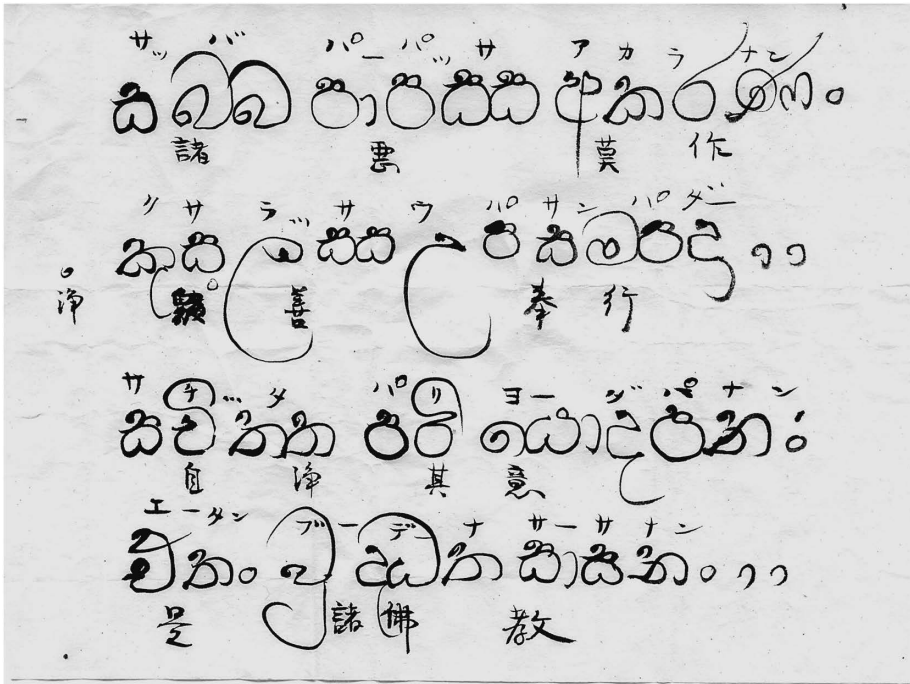 サッバ パーパッサ アカラナン
සබ්බ පාපස්ස අකරණං
諸 悪 莫 作
クサラッサウパサンパダー
කුසලස්ස උපසම්පදා
浄 善 奉 行
サチッタ パリヨーダパナン
සචිත්ත පරියොදපනං
自 浄 其 意
エータン ブーデーナ サーサナン
ඒතං බුද්ධාන සාසනං
是 諸 佛 教